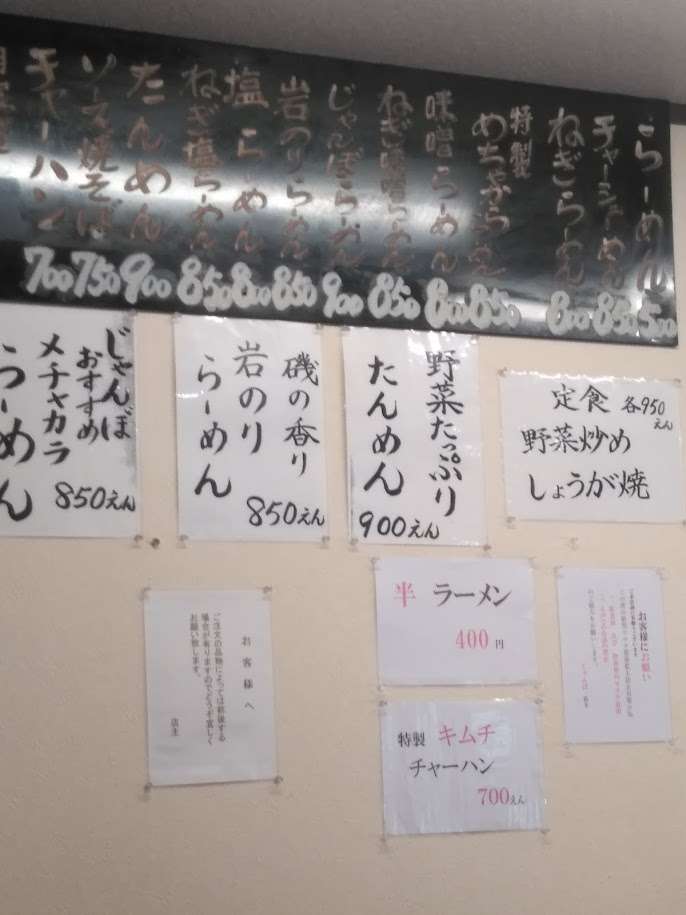 らーめん 500
チャーシューめん 850
ねぎらーめん 800
特製
めちゃからーめん 850
味噌らーめん 800
ねぎ味噌らーめん 850
じゃんぼらーめん 900
岩のりらーめん 850
塩らーめん 800
ねぎ塩らーめん 850
たんめん 900
ソース焼そば 750
チャーハン 700
定食 各950えん
野菜炒め
しょうが焼
野菜たっぷり
たんめん
900えん
磯の香り
岩のり
らーめん
850えん
じゃんぼ
おすすめ
メチャカラ
らーめん
850えん
半 ラーメン
400円
特製 キムチ
チャーハン
700えん
お客様にお願い
お客様へ
ご注文の品物によっては前後する
場合が有りますのでどうぞ宜しく
お願い致します。
店主